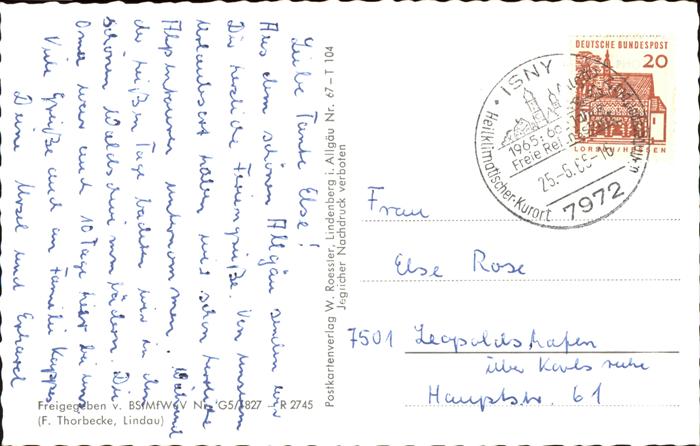 Liebe Tante Else!
Aus dem schönen Allgäu senden wir
Dir herzliche Feriengrüße. Von unserem
Urlaubsort haben wir schon herrliche
Alpentouren unternommen. Während
der heißen Tage badeten wir in den
schönen Waldschwimmbädern. Die
Oma war auch 10 Tage hier bei uns.
Viele Grüße auch an Familie Kappes
Deine Ursel und Erhard
Freigegeben v. BStMfWuV Nr. G5/1827 – R 2745
(F. Thorbecke, Lindau)
Postkartenverlag W. Roessler, Lindenberg i. Allgäu Nr. 67 – T 104
Jeglicher Nachdruck verboten
DEUTSCHE BUNDESPOST
20
LORSCH/HESSEN
ISNY
1965: 600 Jahre
Freie Rei
25.-6.65-16
Heilklimatischer-Kurort
7972
Frau
Else Rose
7501 Leopoldshafen
über Karlsruhe
Hauptstr. 61